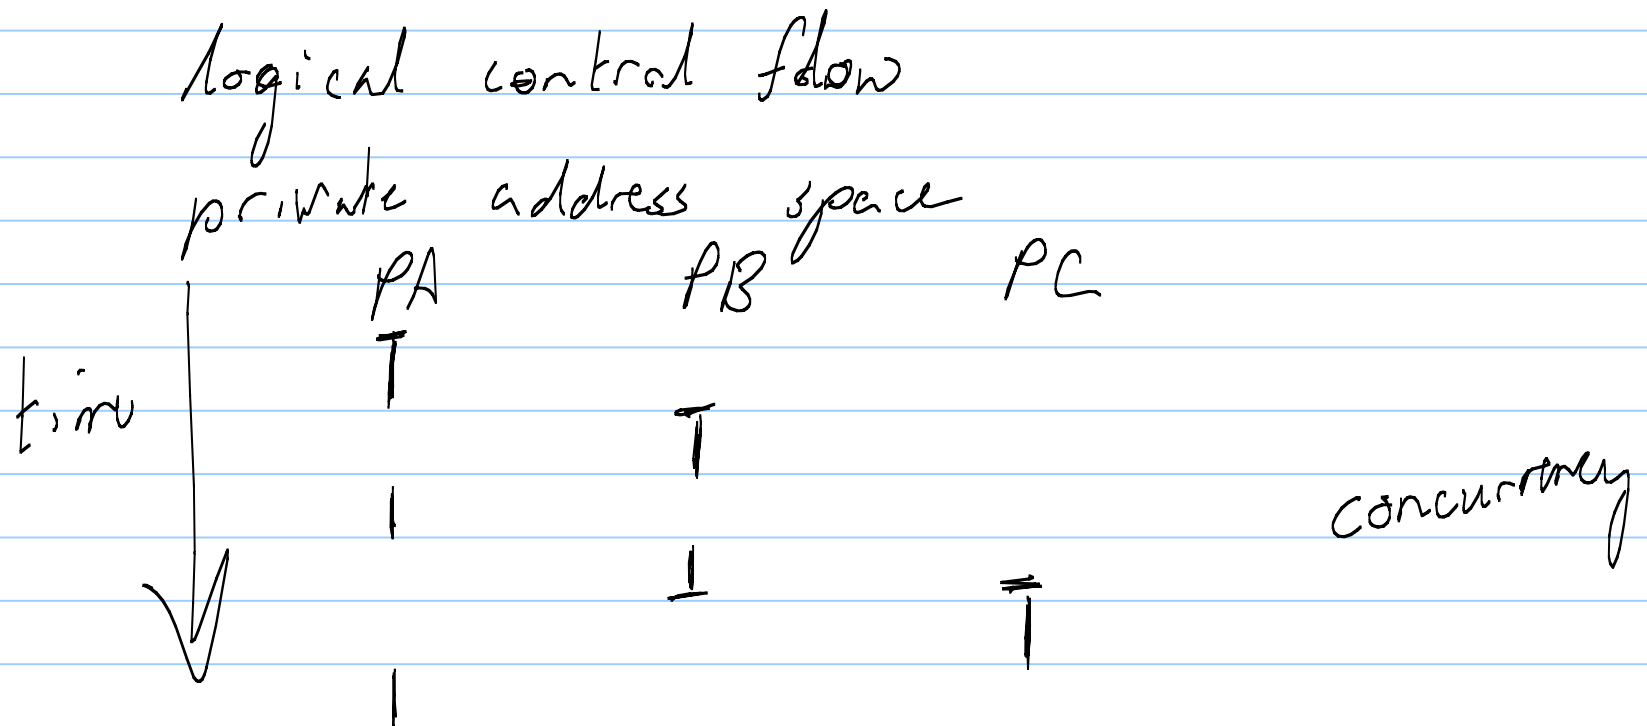 logical control flow
private address space
PA PB PC
time
concurrency